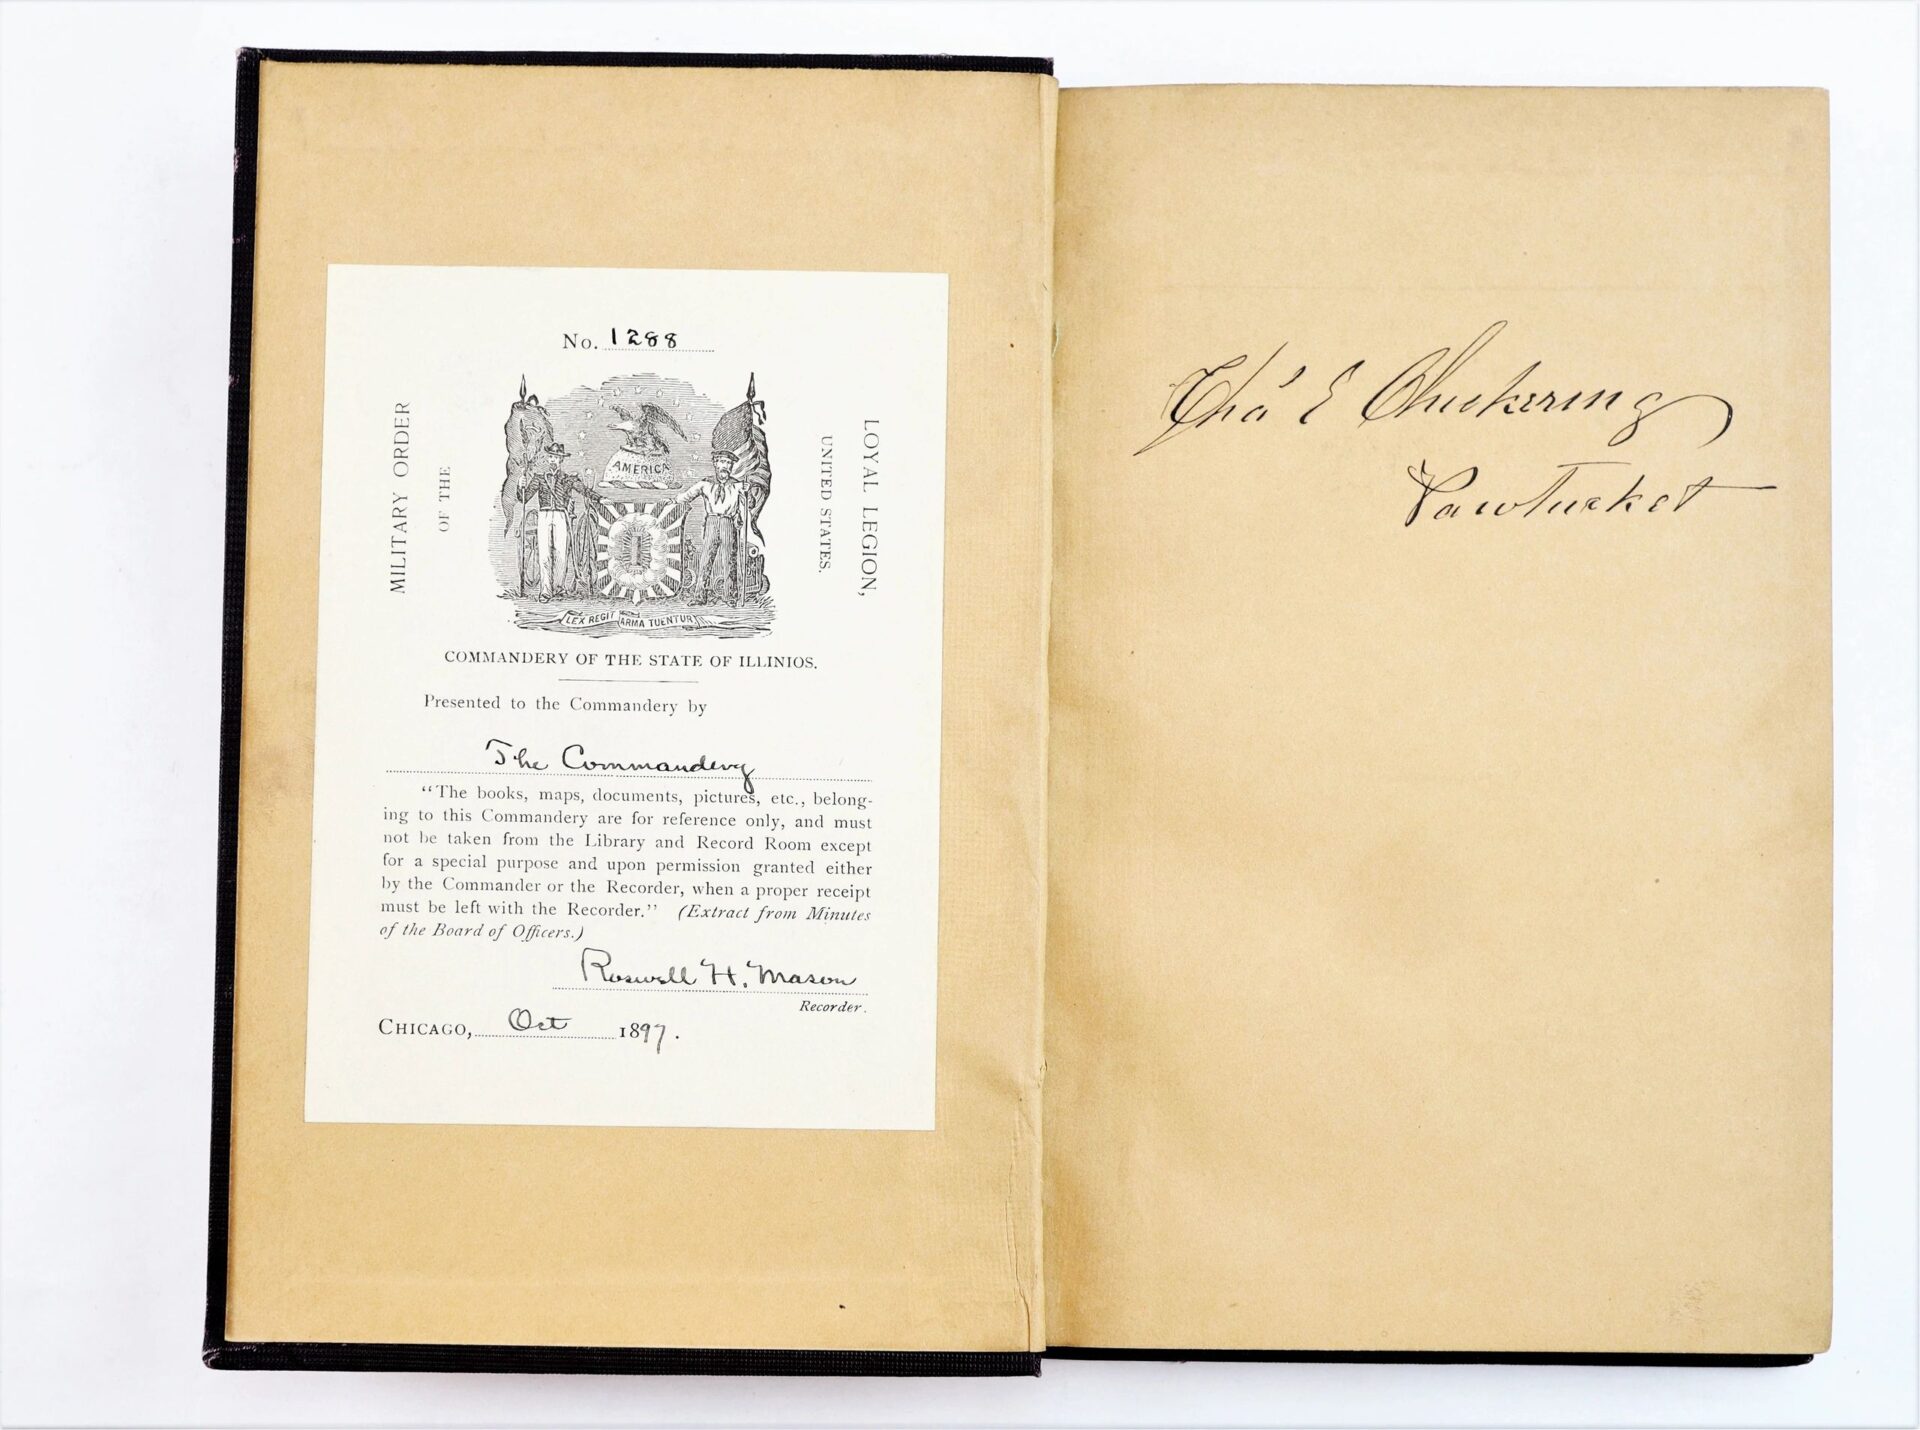 No. 1288
MILITARY ORDER
OF THE
LOYAL LEGION,
UNITED STATES.
AMERICA
LEX REGIT ARMA TUENTUR
COMMANDERY OF THE STATE OF ILLINIOS.
Presented to the Commandery by
The Commandery
"The books, maps, documents, pictures, etc., belong-
ing to this Commandery are for reference only, and must
not be taken from the Library and Record Room except
for a special purpose and upon permission granted either
by the Commander or the Recorder, when a proper receipt
must be left with the Recorder." (Extract from Minutes
of the Board of Officers.)
Roswell H. Mason
Recorder.
CHICAGO, Oct 1897.
Thos E Chickering
Pawtucket